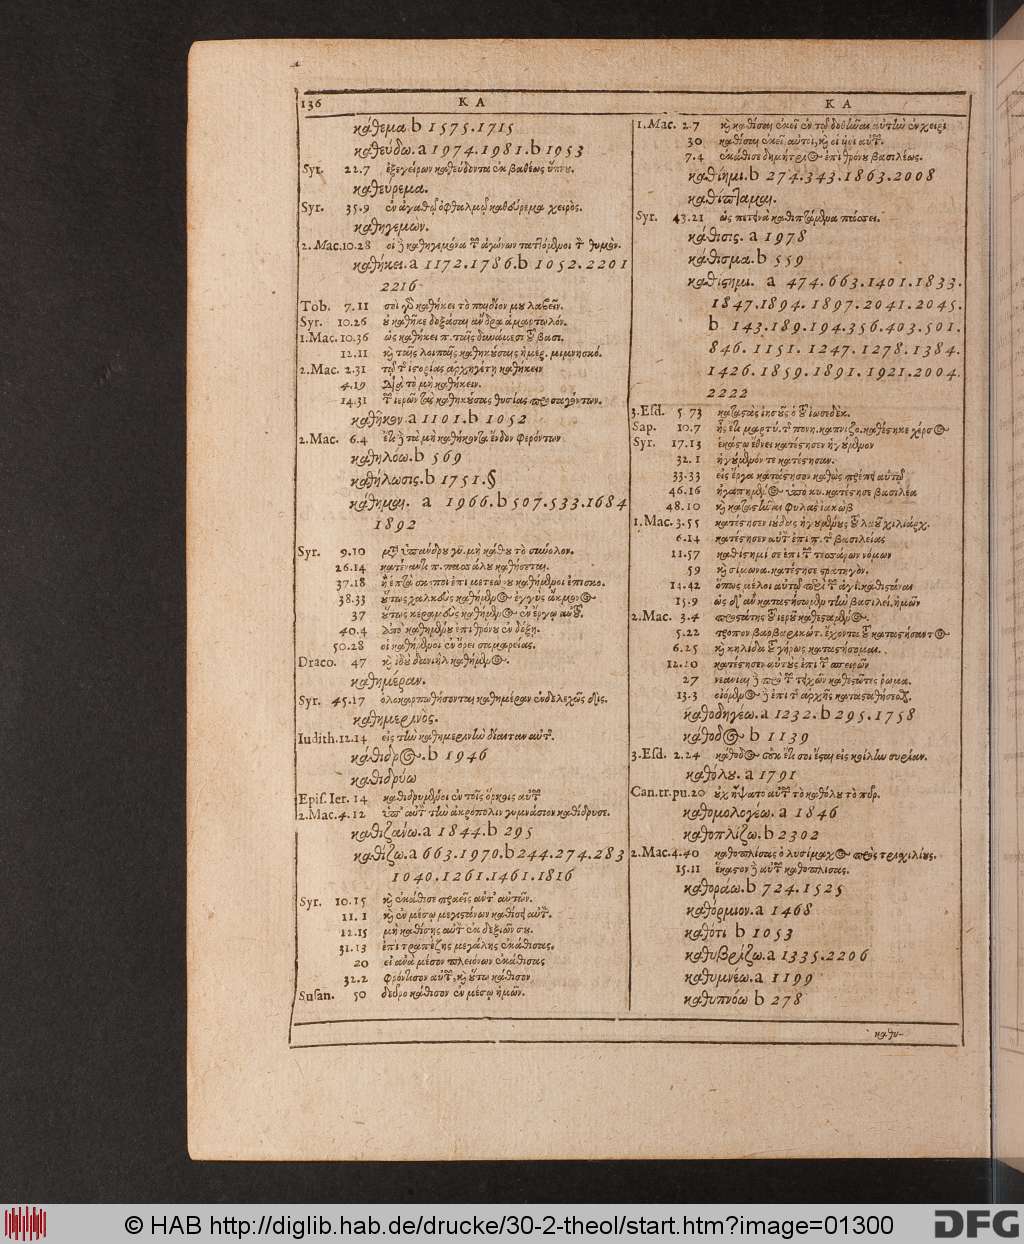 136 Κ Α
κάθεμα. b 1575.1715
καθεύδω. a 1974.1981. b 1053
Syr. 22.7 ἐξεγείρων καθεύδοντα ἐκ βαθέως ὕπνου.
καθεύρεμα.
Syr. 35.9 ἐν ἀγαθῷ ὀφθαλμῷ καθεύρεμα χειρὸς.
καθηγεμων.
2. Mac. 10.28 οἱ ἢ καθηγεμόνα τῶν ἀγώνων ταττόμενοι τὸν θυμὸν.
καθήκει. a 1172.1786. b 1052.2201
2216
Tob. 7.11 σοὶ γὰρ καθήκει τὸ παιδίον μου λαβεῖν.
Syr. 10.26 οὐ καθῆκε δοξάσαι ἄνδρα ἁμαρτωλόν.
1. Mac. 10.36 ὡς καθήκει π. ταῖς δυνάμεσι τοῦ βασι.
12.11 καὶ ταῖς λοιπαῖς καθηκούσαις ἡμέρ. μιμνησκό.
2. Mac. 2.31 τῷ τῆς ἱστορίας ἀρχηγέτῃ καθήκειν
4.19 διὰ τὸ μὴ καθήκειν.
14.31 τῶν ἱερῶν τὰς καθηκούσας θυσίας προσαγόντων.
καθῆκον. a 1101. b 1052
2. Mac. 6.4 ἔτι ἢ τὰ μὴ καθήκοντα ἔνδον φερόντων
καθηλόω. b 569
καθήλωσις. b 1751. §
κάθημαι. a 1966. b 507.533.1684
1892
Syr. 9.10 μετὰ ὑπάνδρου γυ. μὴ κάθου τὸ σύνολον.
26.14 κατέναντι π. πασσάλου καθήσεται.
37.18 ἢ ἑπτὰ σκοποὶ ἐπὶ μετεώρου καθήμενοι ἐπὶ σκο.
38.33 οὕτως χαλκεὺς καθήμενος ἐγγὺς ἄκμονος
37 οὕτως κεραμεὺς καθήμενος ἐν ἔργῳ αὐτοῦ.
40.4 ἀπὸ καθημένου ἐπὶ θρόνου ἐν δόξῃ.
50.28 οἱ καθήμενοι ἐν ὄρει σαμαρείας.
Draco. 47 καὶ ἰδοὺ δανιὴλ καθήμενος.
καθημέραν.
Syr. 45.17 ὁλοκαρπωθήσονται καθημέραν ἐνδελεχῶς δίς.
καθημερινὸς.
Iudith. 12.14 εἰς τὴν καθημερινὴν δίαιταν αὐτῶν.
κάθιδρος. b 1946
καθιδρύω
Epis. Ier. 14 καθιδρυμένοι ἐν τοῖς
2. Mac. 4.12 ὑπ' αὐτὴν τὴν ἀκρόπολιν γυμνάσιον καθίδρυσε.
καθιζάνω. a 1844. b 295
καθίζω. a 663.1970. b 244.274.283
1040.1261.1461.1816
Syr. 10.15 καὶ ἐκάθισε πραεῖς ἀντ' αὐτῶν.
11.1 καὶ ἐν μέσῳ μεγιστάνων καθίσει αὐτὸν.
12.15 μὴ καθίσῃς αὐτὸν ἐκ δεξιῶν σου.
31.13 ἐπὶ τραπέζης μεγάλης ἐκάθισας.
20 εἰ ἀνὰ μέσον πλειόνων ἐκάθισας
32.2 φρόντισον αὐτῶν, καὶ οὕτω κάθισον
Susan. 50 δεῦρο κάθισον ἐν μέσῳ ἡμῶν.
Κ Α
1. Mac. 2.7 καὶ καθίσαι ἐκεῖ ἐν τῷ δοθῆναι αὐτὴν ἐν χειρὶ
30 καθίσαι ἐκεῖ αὐτοὶ, καὶ οἱ υἱοὶ αὐτῶν.
7.4 ἐκάθισε δημήτριος ἐπὶ θρόνου βασιλέως.
καθίημι. b 274.343.1863.2008
καθίπταμαι.
Syr. 43.21 ὡς πετεινὰ καθιπτάμενα πάσσει.
κάθισις. a 1978
κάθισμα. b 559
καθίστημι. a 474.663.1401.1833.
1847.1894.1897.2041.2045.
b 143.189.194.356.403.501.
846.1151.1247.1278.1384.
1426.1859.1891.1921.2004.
2222
3. Esd. 5.73 καταστὰς ἰησοῦς ὁ τοῦ ἰωσεδὲκ.
Sap. 10.7 ἧς ἔτι μαρτύ. τῆς πονη. καπνιζο. καθέστηκε χέρσος
Syr. 17.13 ἑκάστῳ ἔθνει κατέστησεν ἡγούμενον
32.1 ἡγούμενόν σε κατέστησαν.
33.33 εἰς ἔργα κατάστησον καθὼς πρέπει αὐτῷ
46.16 ἠγαπημένος ὑπὸ κυ. κατέστησε βασιλέα
48.10 καὶ καταστῆσαι φυλὰς ἰακώβ
1. Mac. 3.55 κατέστησεν ἰούδας ἡγουμένους τοῦ λαοῦ χιλιάρχ.
6.14 κατέστησεν αὐτὸν ἐπὶ π. τῆς βασιλείας
11.57 καθίστημί σε ἐπὶ τῶν τεσσάρων νόμων
59 καὶ σίμωνα. κατέστησε στρατηγὸν.
14.42 ὅπως μέλοι αὐτῷ περὶ τῶν ἁγί. καθιστάναι
15.9 ὡς δ' ἂν καταστήσωμεν τὴν βασιλεί. ἡμῶν
2. Mac. 3.4 προστάτης τοῦ ἱεροῦ καθεσταμένος.
5.22 τρόπον βαρβαρικώτ. ἔχοντα τοῦ καταστήσαντος
6.25 καὶ κηλίδα τοῦ γήρως καταστήσομαι.
12.20 κατέστησεν αὐτοὺς ἐπὶ τῶν σπειρῶν
27 νεανίαι ἢ πρὸ τῶν τειχῶν καθεστῶτες ῥωμα.
13.3 οἰόμενος ἢ ἐπὶ τῆς ἀρχῆς κατασταθήσεσθαι.
καθοδηγέω. a 1232. b 295.1758
κάθοδος b 1139
3. Esd. 2.24 κάθοδος οὐκ ἔτι σοι ἔσται εἰς κοίλην συρίαν.
καθόλου. a 1791
Can. tr. pu. 20 οὐχ ἥψατο αὐτῶν τὸ καθόλου τὸ πῦρ.
καθομολογέω. a 1846
καθοπλίζω. b 2302
2. Mac. 4.40 καθοπλίσας ὁ λυσίμαχος πρὸς τρισχιλίους.
15.11 ἕκαστον ἢ αὐτῶν καθοπλίσας.
καθοράω. b 724.1525
καθόρμιον. a 1468
καθότι b 1053
καθυβρίζω. a 1335.2206
καθυμνέω. a 1199
καθυπνόω b 278
καθυ-
© HAB http://diglib.hab.de/drucke/30-2-theol/start.htm?image=01300
DFG